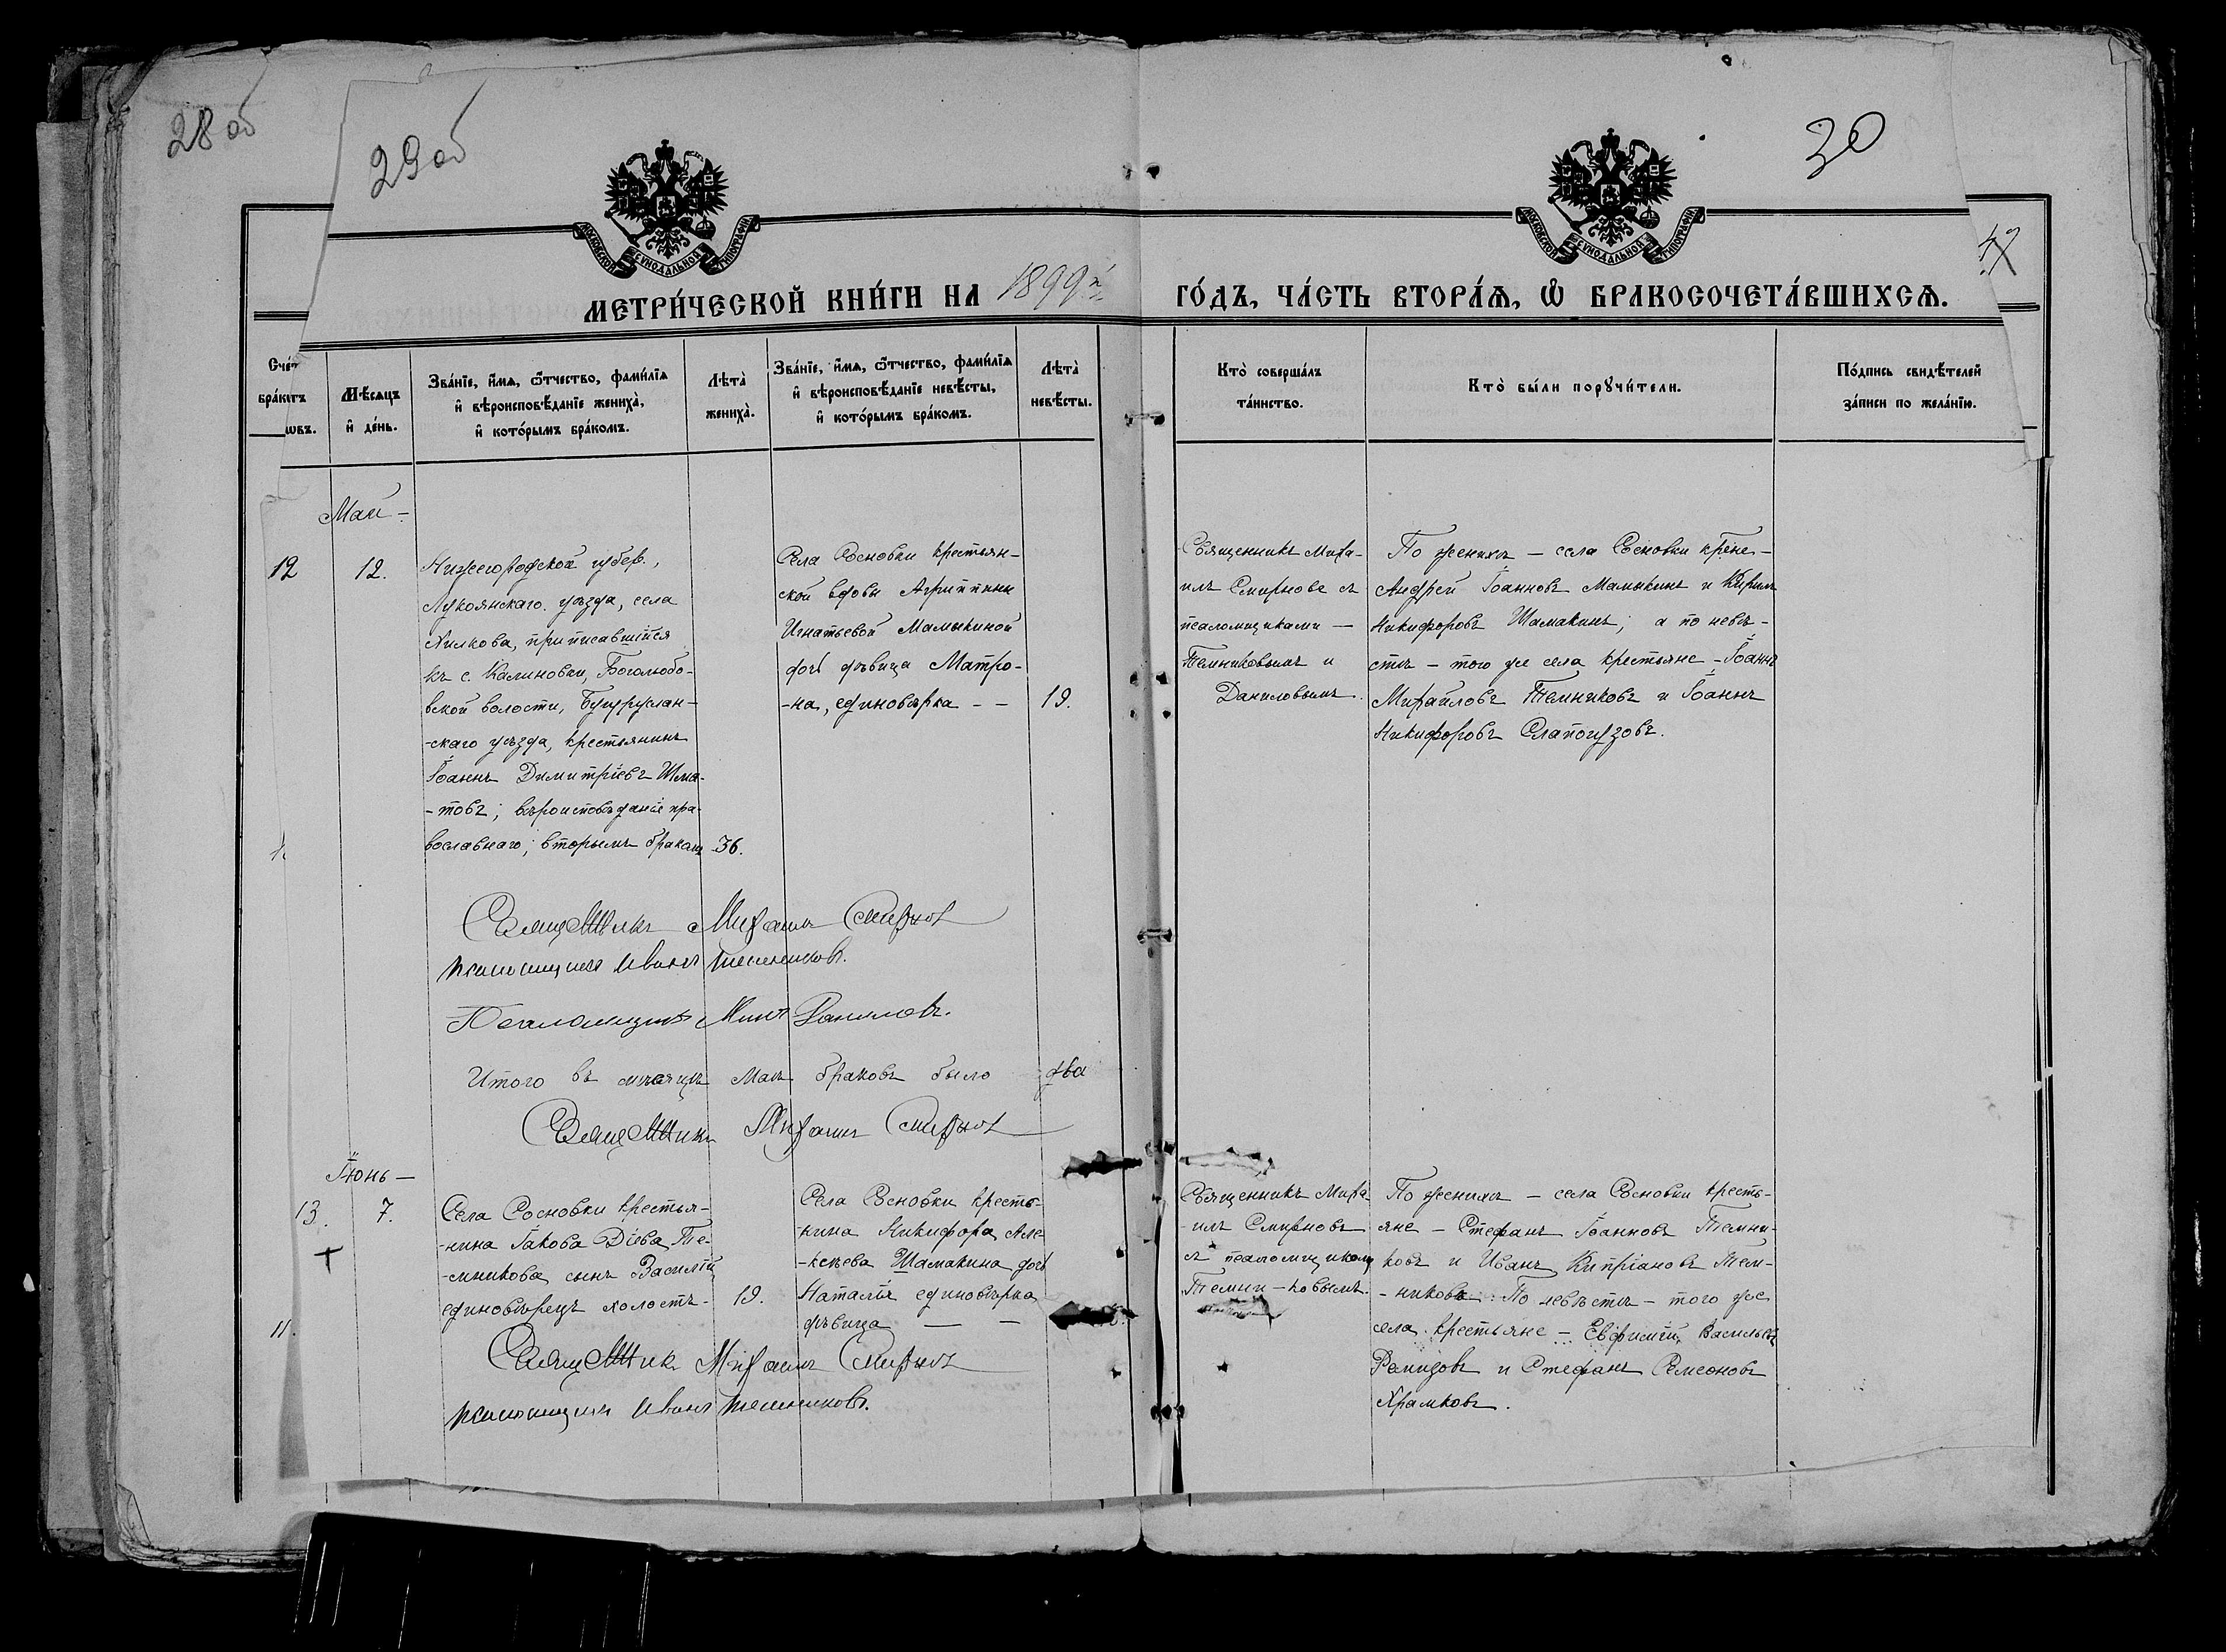 28 об
29 об
30
47
МОСКОВСКОЙ СѴНОДАЛЬНОЙ ТИПОГРАФІИ
МОСКОВСКОЙ СѴНОДАЛЬНОЙ ТИПОГРАФІИ
МЕТРИ́ЧЕСКОЙ КНИ́ГИ НА 1899й ГО́ДЪ, ЧА́СТЬ ВТОРА́Ѧ, Ѡ҆ БРАКОСОЧЕТА́ВШИХСѦ.
Сче́т
бра́кѡвъ.
Мѣ́сѧцъ
и҆ де́нь.
Зва́нїе, и҆́мѧ, ѻ҆́тчество, фами́лїѧ
и҆ вѣроисповѣ́данїе жениха̀,
и҆ кото́рымъ бра́комъ.
Лѣта̀
жениха̀.
Зва́нїе, и҆́мѧ, ѻ҆́тчество, фами́лїѧ
и҆ вѣроисповѣ́данїе невѣ́сты,
и҆ кото́рымъ бра́комъ.
Лѣта̀
невѣ́сты.
Кто̀ соверша́лъ
та́инство.
Кто̀ бы́ли порꙋчи́тели.
По́дпись свидѣ́телей
за́писи по жела́нїю.
Май –
12
12.
Нижегородской губер.,
Лукоянскаго уѣзда, села
Хилкова, приписавшійся
къ с. Калиновки, Боголюбо-
вской волости, Бугуруслан-
-скаго уѣзда, крестьянинъ
Іоаннъ Димитріевъ Шма-
-товъ; вѣроисповѣданіе пра-
вославнаго; вторымъ бракомъ
36.
Села Сосновки крестьян-
ской вдовы Агриппины
Игнатьевой Мамыкиной
дочь дѣвица Матро-
-на, единовѣрка – –
19.
Священникъ Миха-
илъ Смирновъ съ
псаломщиками –
Темниковымъ и
Даниловымъ.
По женихѣ – села Сосновки кр-не –
Андрей Іоанновъ Мамыкинъ и Кирилъ
Никифоровъ Шамакинъ; а по невѣ-
стѣ – того же села крестьяне – Іоаннъ
Михайловъ Темниковъ и Іоаннъ
Никифоровъ Слапогузовъ.
Священникъ Михаилъ Смирновъ
псаломщикъ Иванъ Темниковъ.
Псаломщикъ Данiловъ.
Итого въ мѣсяцѣ маѣ браковъ было два
Священникъ Михаилъ Смирновъ
Іюнь –
13.
7.
Села Сосновки крестья-
-нина Іакова Діева Те-
-мникова сынъ Василій
единовѣрецъ холостъ –
19.
Села Сосновки кресть-
-нина Никифора Але-
-ксѣева Шамакина дочь
Наталія единовѣрка
дѣвица – –
Священникъ Миха-
-илъ Смирновъ
съ псаломщикомъ
Темни-ковымъ.
По женихѣ – села Сосновки кресть-
яне – Стефанъ Іоанновъ Темни-
ковъ и Иванъ Кипріановъ Тем-
-никовъ. По невѣстѣ – того же
села крестьяне – Евфимій Васильевъ
Ремизовъ и Стефанъ Семеоновъ
Храмковъ.
Священникъ Михаилъ Смирновъ
псаломщикъ Иванъ Темниковъ.